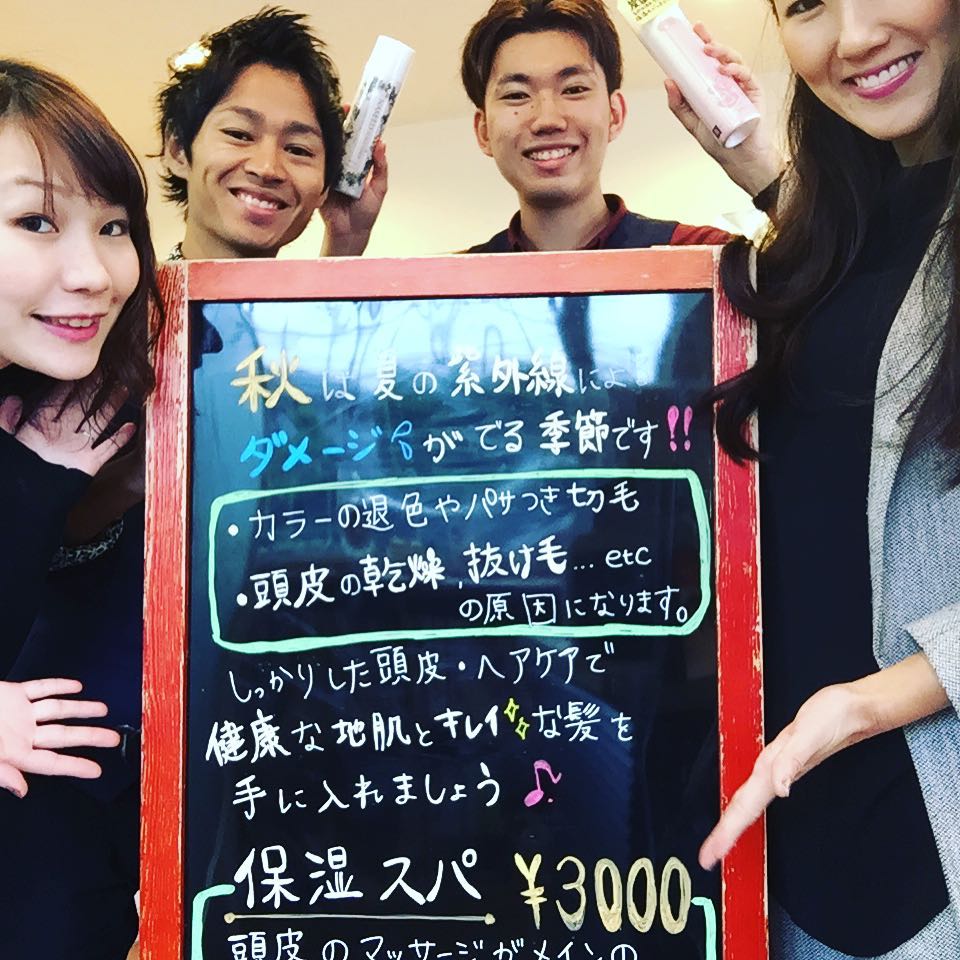 秋は夏の紫外線による
ダメージがでる季節です!!
・カラーの退色やパサつき切毛
・頭皮の乾燥,抜け毛...etc
の原因になります。
しっかりした頭皮・ヘアケアで
健康な地肌とキレイな髪を
手に入れましょう♪
保湿スパ ¥3000
頭皮のマッサージがメインの